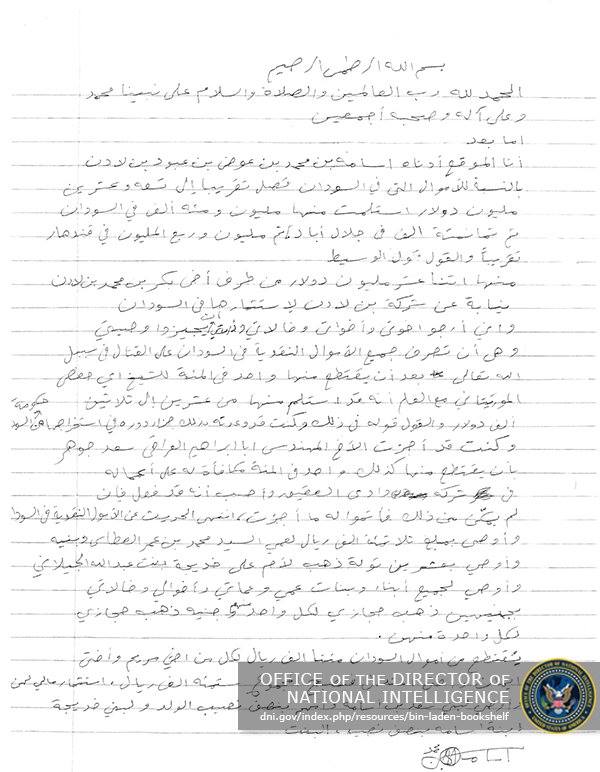 بسم الله الرحمن الرحيم
الحمد لله رب العالمين والصلاة والسلام على نبينا محمد
وعلى آله وصحبه أجمعين
اما بعد
أنا الموقع أدناه اسامة بن محمد بن عوض بن عبود بن لادن
بالنسبة للأموال التي في السودان تصل تقريبا إلى تسعة وعشرين
مليون دولار استلمت منها مليون ومئة ألف في السودان
ثم ثمانمئة الف في جلال أباد ثم مليون وربع المليون في قندهار
تقريباً والقول قول الوسيط
منها اثنا عشر مليون دولار من طرف أخي بكر بن محمد بن لادن
نيابة عن شركة بن لادن لاستثمارها في السودان
واني أرجو اخوتي وأخواتي وخالاتي أن يجيزوا وصيتي
وهي أن تصرف جميع الأموال النقدية في السودان على القتال في سبيل
الله تعالى بعد أن يقتطع منها واحد في المئة للشيخ ابي حفص
الموريتاني مع العلم أنه قد استلم منها من عشرين إلى ثلاثين
ألف دولار والقول قوله في ذلك وكنت قد وعدته بذلك جزاء دوره في استخراجها من حكومة السودان
وكنت قد أجزت الأخ المهندس ابا ابراهيم العراقي سعد جوهر
بأن يقتطع منها كذلك واحد في المئة مكافأة له على أعماله
في شركة وادي العقيق وأحسب أنه قد فعل فإن
لم يكن من ذلك فأتموا له ما أجزت، انتهى الحديث عن الأموال النقدية في السودان
وأوصي بمبلغ ثلاثمئة الف ريال لعمي السيد محمد بن عمر العطاس وبنيه
وأوصي بعشر من تولة ذهب لأم علي خديجة ابنت عبدالله الجيلاني
وأوصي لجميع أبناء وبنات عمي وعماتي وأخوالي وخالاتي
بجنيهين ذهب حجازي لكل واحد منهم وجنيه ذهب حجازي
لكل واحدة منهن .
يقتطع من أموال السودان مئتا الف ريال لكل من اختي مريم وأختي
OFFICE OF THE DIRECTOR OF
NATIONAL INTELLIGENCE
dni.gov/index.php/resources/bin-laden-bookshelf